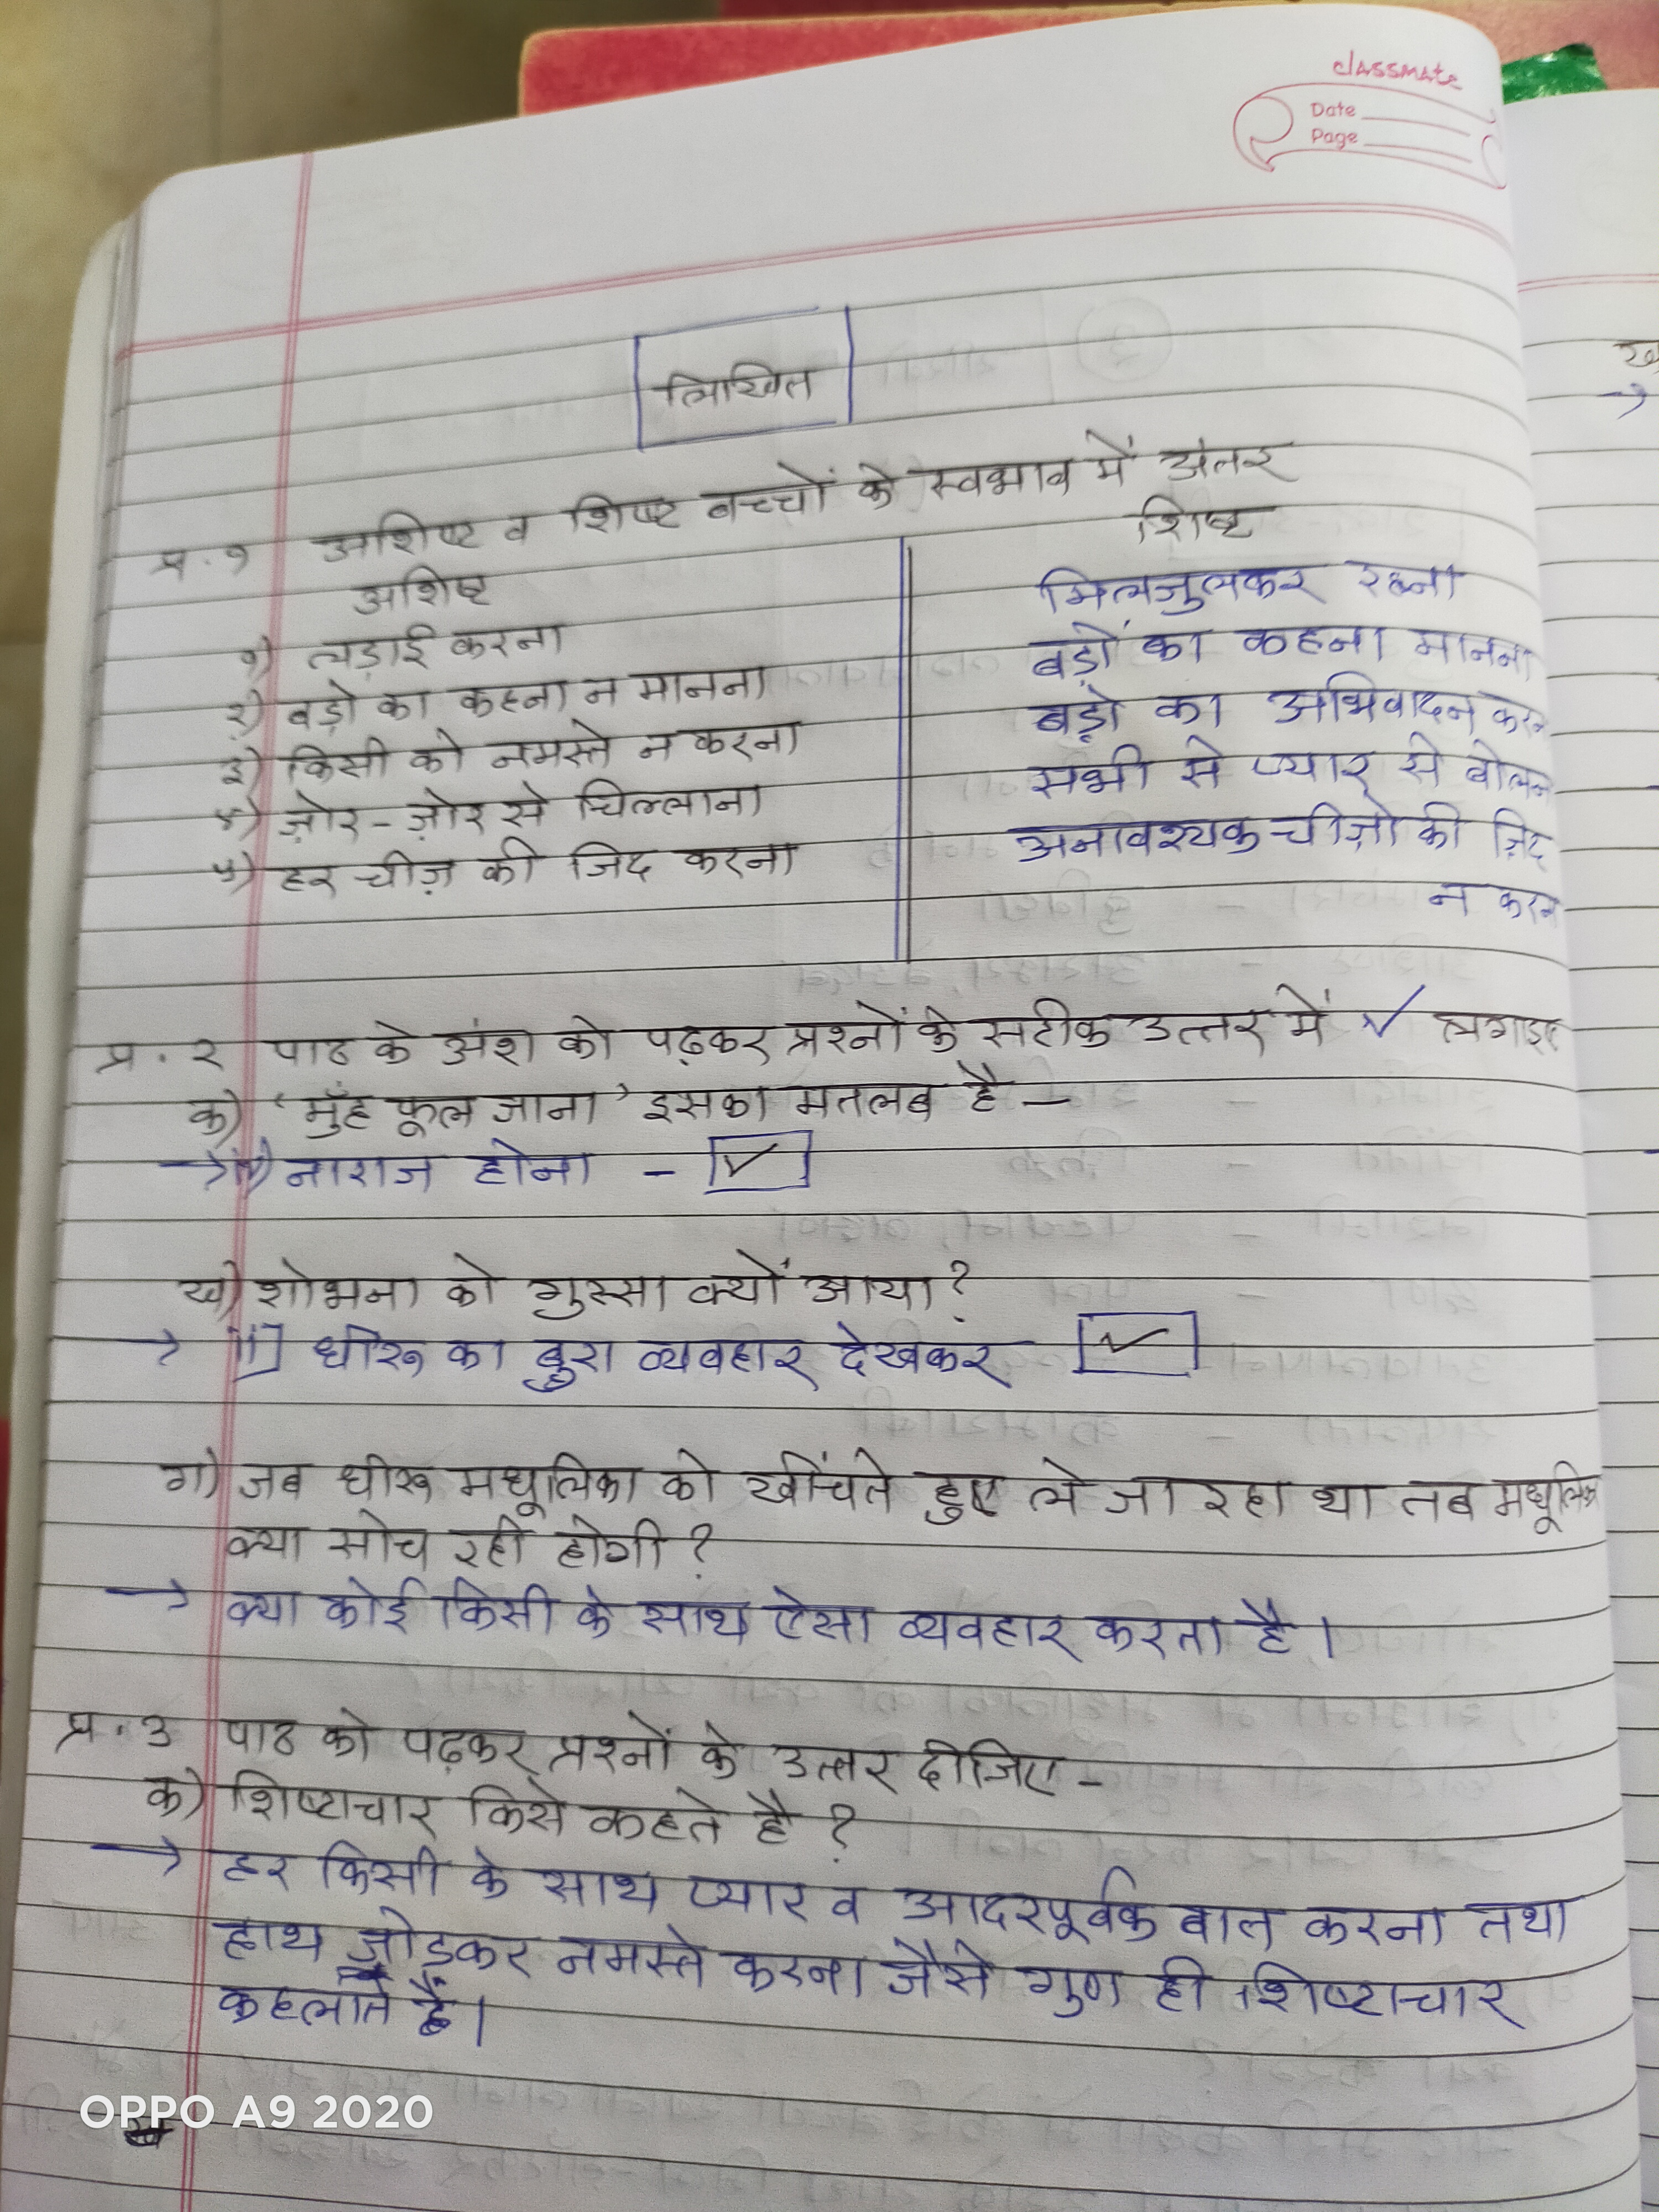 classmate
Date
Page
लिखित
प्र.१ अशिष्ट व शिष्ट बच्चों के स्वभाव में अंतर
अशिष्ट
शिष्ट
१) लड़ाई करना
मिलजुलकर रहना
२) बड़ो का कहना न मानना
बड़ों का कहना मानना
३) किसी को नमस्ते न करना
बड़ो का अभिवादन करन
४) ज़ोर-ज़ोर से चिल्लाना
सभी से प्यार से बोलन
५) हर चीज़ की जिद करना
अनावश्यक चीज़ो की ज़िद
न करन
प्र.२ पाठ के अंश को पढ़कर प्रश्नों के सटीक उत्तर में ✓ लगाइए
क) 'मुँह फूल जाना' इसका मतलब है –
→ नाराज होना - ✓
ख) शोभना को गुस्सा क्यों आया?
→ ii] धीरू का बुरा व्यवहार देखकर ✓
ग) जब धीरू मधूलिका को खींचते हुए ले जा रहा था तब मधूलिक
क्या सोच रही होगी?
→ क्या कोई किसी के साथ ऐसा व्यवहार करता है।
प्र.३ पाठ को पढ़कर प्रश्नों के उत्तर दीजिए -
क) शिष्टाचार किसे कहते है ?
→ हर किसी के साथ प्यार व आदरपूर्वक बात करना तथा
हाथ जोडकर नमस्ते करना जैसे गुण ही शिष्टाचार
कहलाते हैं।
OPPO A9 2020